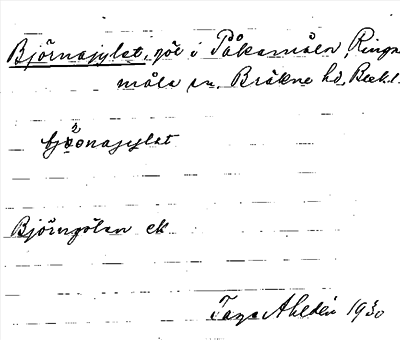 Björnagylet, göl i Påkamåla, Ringa-
måla sn, Bräkne hd, Blek.l.
bjönagylet
Björngölen ek
Tage Ahldén 1930